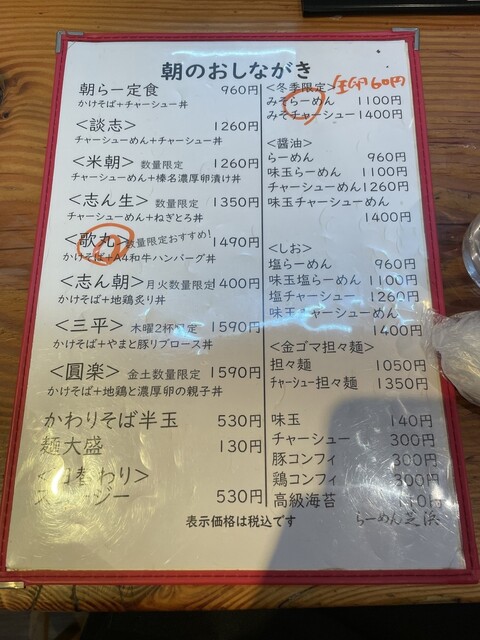 朝のおしながき
朝らー定食 960円
かけそば+チャーシュー丼
<談志> 1260円
チャーシューめん+チャーシュー丼
<米朝> 数量限定 1260円
チャーシューめん+榛名濃厚卵漬け丼
<志ん生> 数量限定 1350円
チャーシューめん+ねぎとろ丼
<歌丸>数量限定おすすめ! 1490円
かけそば+A4和牛ハンバーグ丼
<志ん朝>月火数量限定1400円
かけそば+地鶏炙り丼
<三平> 木曜2杯限定 1590円
かけそば+やまと豚リブロース丼
<圓楽> 金土数量限定 1590円
かけそば+地鶏と濃厚卵の親子丼
かわりそば半玉 530円
麺大盛 130円
<日替わり>
530円
<冬季限定>
生卵60円
みそらーめん 1100円
みそチャーシュー1400円
<醤油>
らーめん 960円
味玉らーめん 1100円
チャーシューめん1260円
味玉チャーシューめん
1400円
<しお>
塩らーめん 960円
味玉塩らーめん 1100円
塩チャーシュー 1260円
味玉チャーシューめん
1400円
<金ゴマ担々麺>
担々麺 1050円
チャーシュー担々麺 1350円
味玉 140円
チャーシュー 300円
豚コンフィ 300円
鶏コンフィ 300円
高級海苔
表示価格は税込です
らーめん芝浜